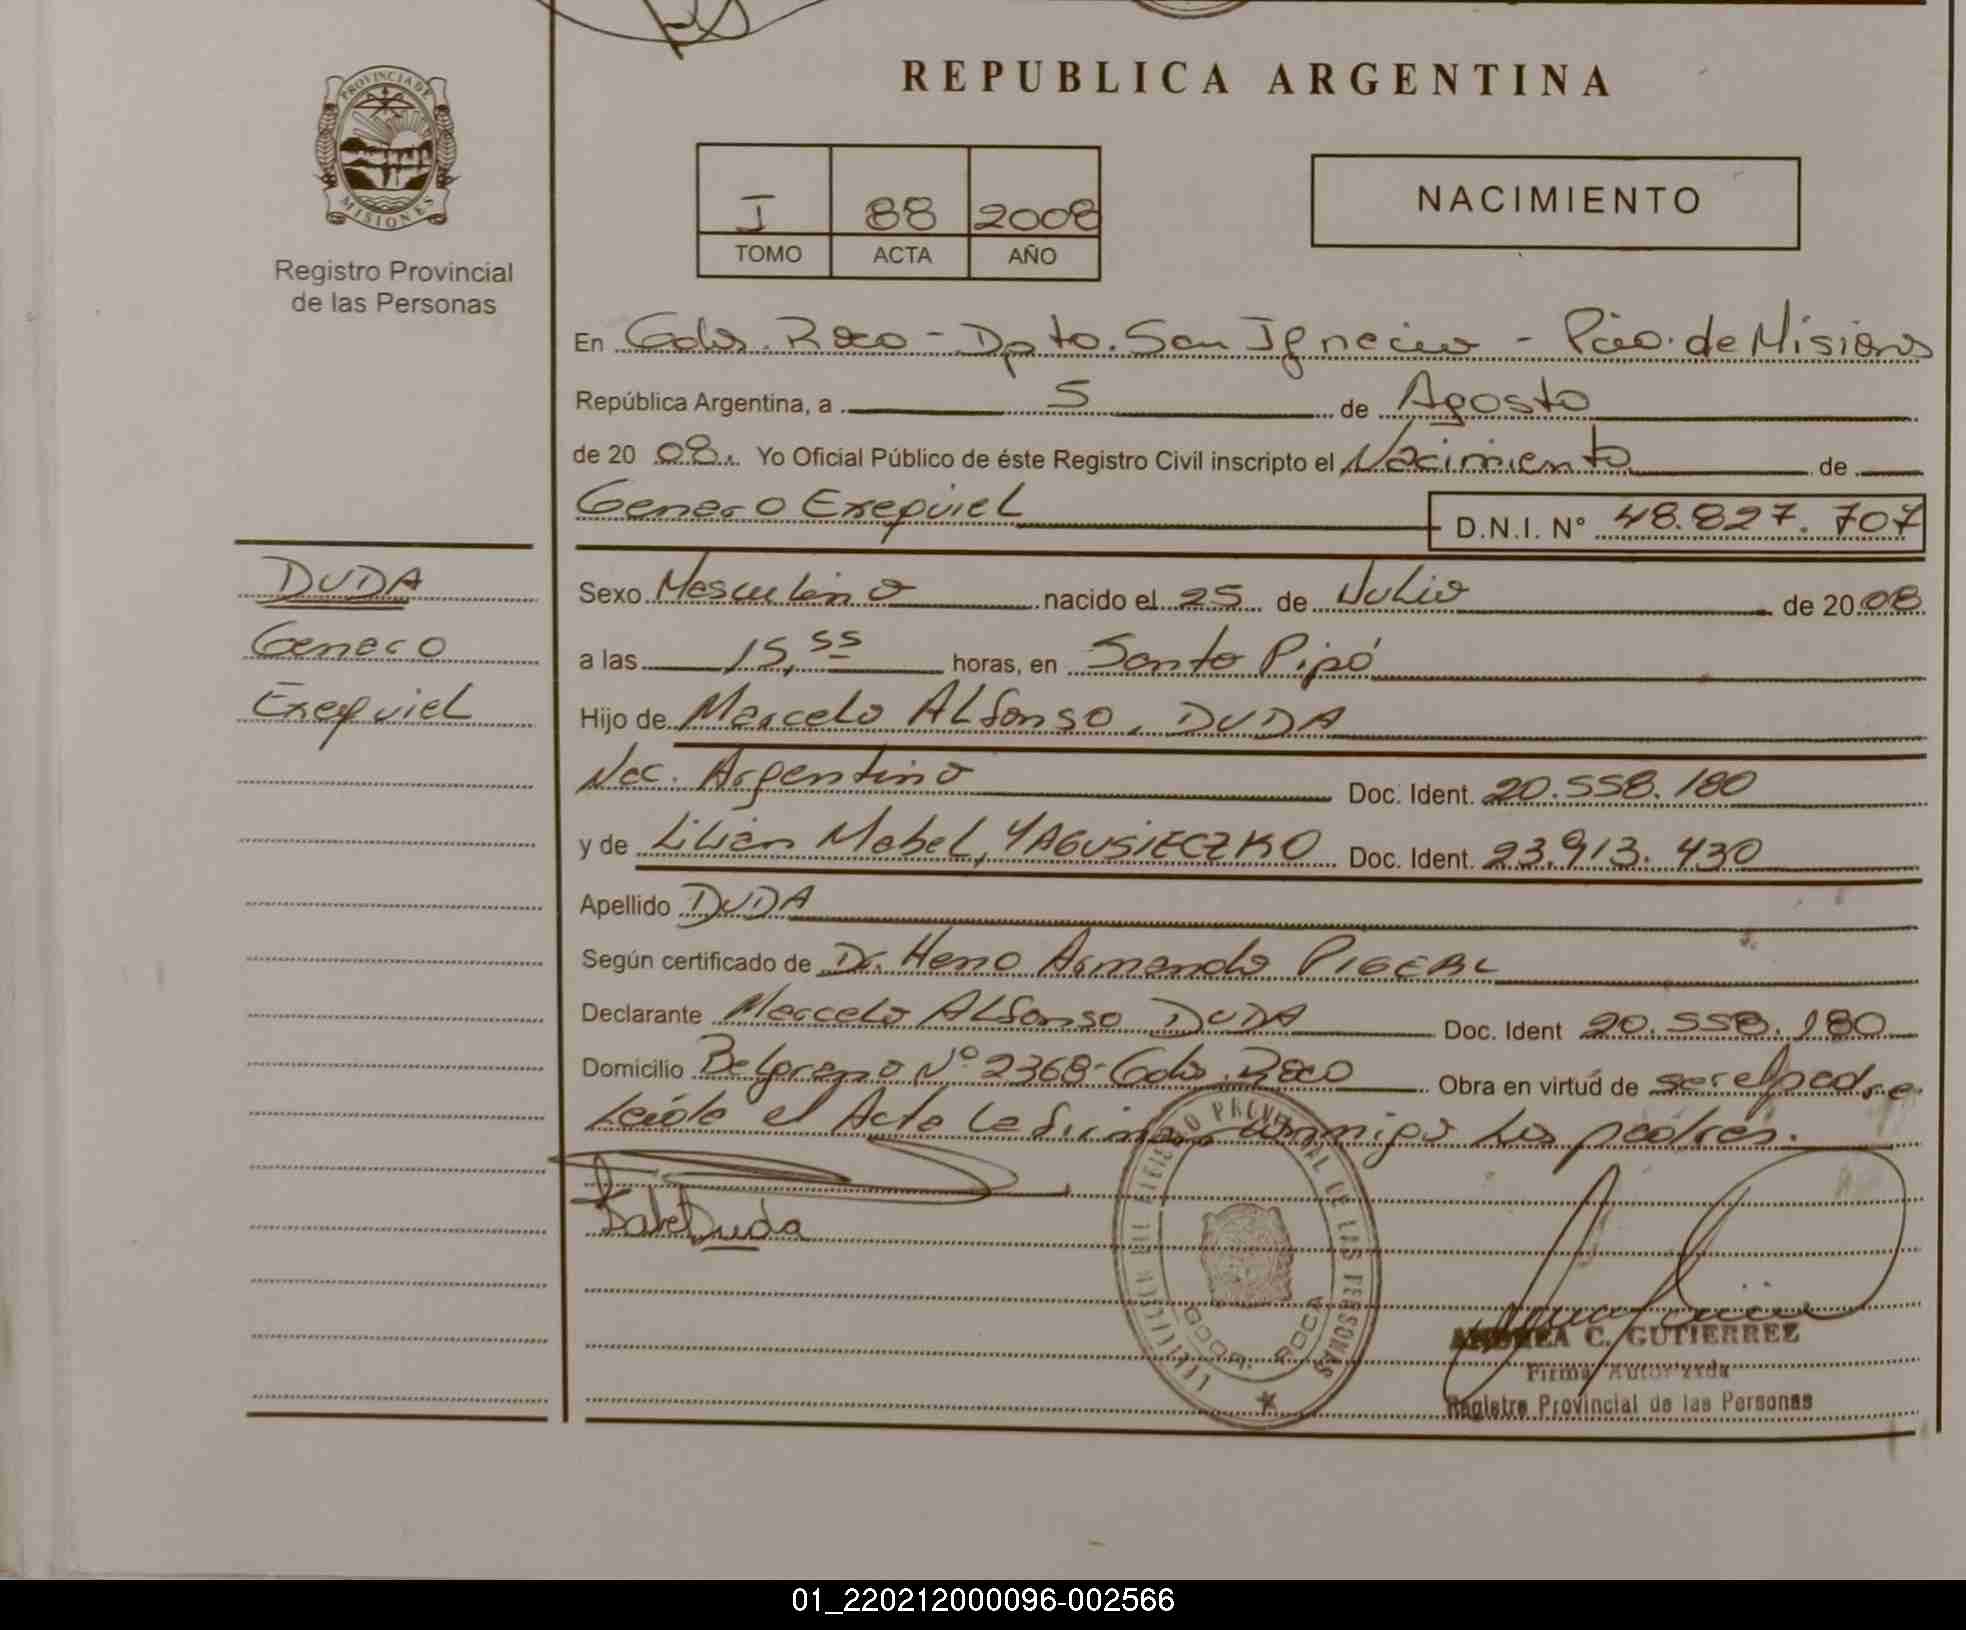 REPUBLICA ARGENTINA
PROVINCIA DE
MISIONES
Registro Provincial
de las Personas
I 88 2008
TOMO ACTA AÑO
NACIMIENTO
En Gdor. Roca - Dpto. San Ignacio - Pcia. de Misiones
República Argentina, a 5 de Agosto
de 20 08. Yo Oficial Público de éste Registro Civil inscripto el Nacimiento de
Genaro Exequiel D.N.I. N° 48.827.707
DUDA
Genaro
Exequiel
Sexo Masculino nacido el 25 de Julio de 20 08
a las 15,55 horas, en Santo Pipó
Hijo de Marcelo Alfonso, DUDA
Nac. Argentino Doc. Ident. 20.558.180
y de Lilian Mabel, YAGUSIECZKO Doc. Ident. 23.913.430
Apellido DUDA
Según certificado de Dr. Armando
Declarante Marcelo Alfonso DUDA Doc. Ident 20.558.180
Domicilio Belgrano N° 2368 - Gdor. Roca Obra en virtud de ser el padre
Leída el Acta la firman conmigo los padres.
Duda
REGISTRO PROVINCIAL DE LAS PERSONAS
GDOR. ROCA
ANDREA C. GUTIERREZ
Firma Autorizada
Registro Provincial de las Personas
01_220212000096-002566